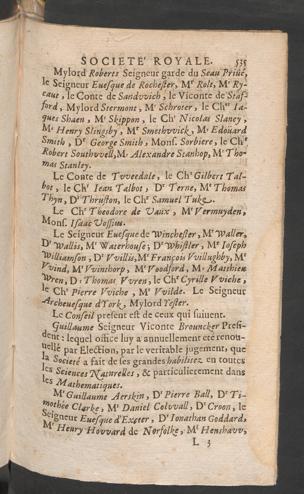 SOCIETE ROYALE. 535
Mylord Roberts Seigneur garde du Seau Priué,
le Seigneur Euesque de Rochester, Mr Rolt, Mr Ry-
caut, le Conte de Sandvvich, le Viconte de Staf-
ford, Mylord Stermont, Mr Schroter, le Chr Ia-
ques Shaen, Mr Skippon, le Chr Nicolas Slaney,
Mr Henry Slingsby, Mr Smethvvick, Mr Edoüard
Smith, Dr George Smith, Mons. Sorbiere, le Chr
Robert Southvvell, Mr Alexandre Stanhop, Mr Tho-
mas Stanley.
Le Conte de Tvveedale, le Chr Gilbert Tal-
bot, le Chr Iean Talbot, Dr Terne, Mr Thomas
Thyn, Dr Thruston, le Chr Samuel Tuke.
Le Chr Theodore de Vaux, Mr Vermuyden,
Mons. Isaac Vossius.
Le Seigneur Euesque de Winchester, Mr Waller,
Dr Wallis, Mr Waterhouse, Dr Whistler, Mr Ioseph
Williamson, Dr Vvillis, Mr François Vvillughby, Mr
Vvind, Mr Vvinthorp, Mr Vvoodford, Mr Matthieu
Wren, Dr Thomas Vvren, le Chr Cyrille Vviche,
le Chr Pierre Vviche, Mr Vvilde. Le Seigneur
Archeuesque d'York, Mylord Yester.
Le Conseil present est de ceux qui suiuent.
Guillaume Seigneur Viconte Brouncker Presi-
dent: lequel office luy a annuellement eté renou-
uellé par Election, par le veritable jugement, que
la Societé a fait de ses grandes habilitez en toutes
les Sciences Naturelles, & particulierement dans
les Mathematiques.
Mr Guillaume Aerskin, Dr Pierre Ball, Dr Ti-
mothée Clarke, Mr Daniel Colvvall, Dr Croon, le
Seigneur Euesque d'Exeter, Dr Ionathan Goddard,
Mr Henry Hovvard de Norfolke, Mr Henshavv,
L 3